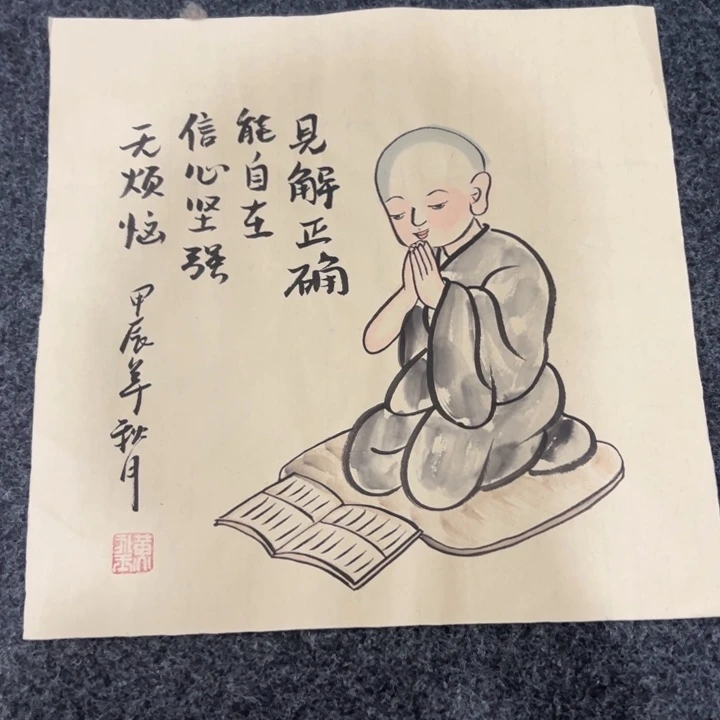 见解正确
能自在
信心坚强
无烦恼
甲辰年秋月